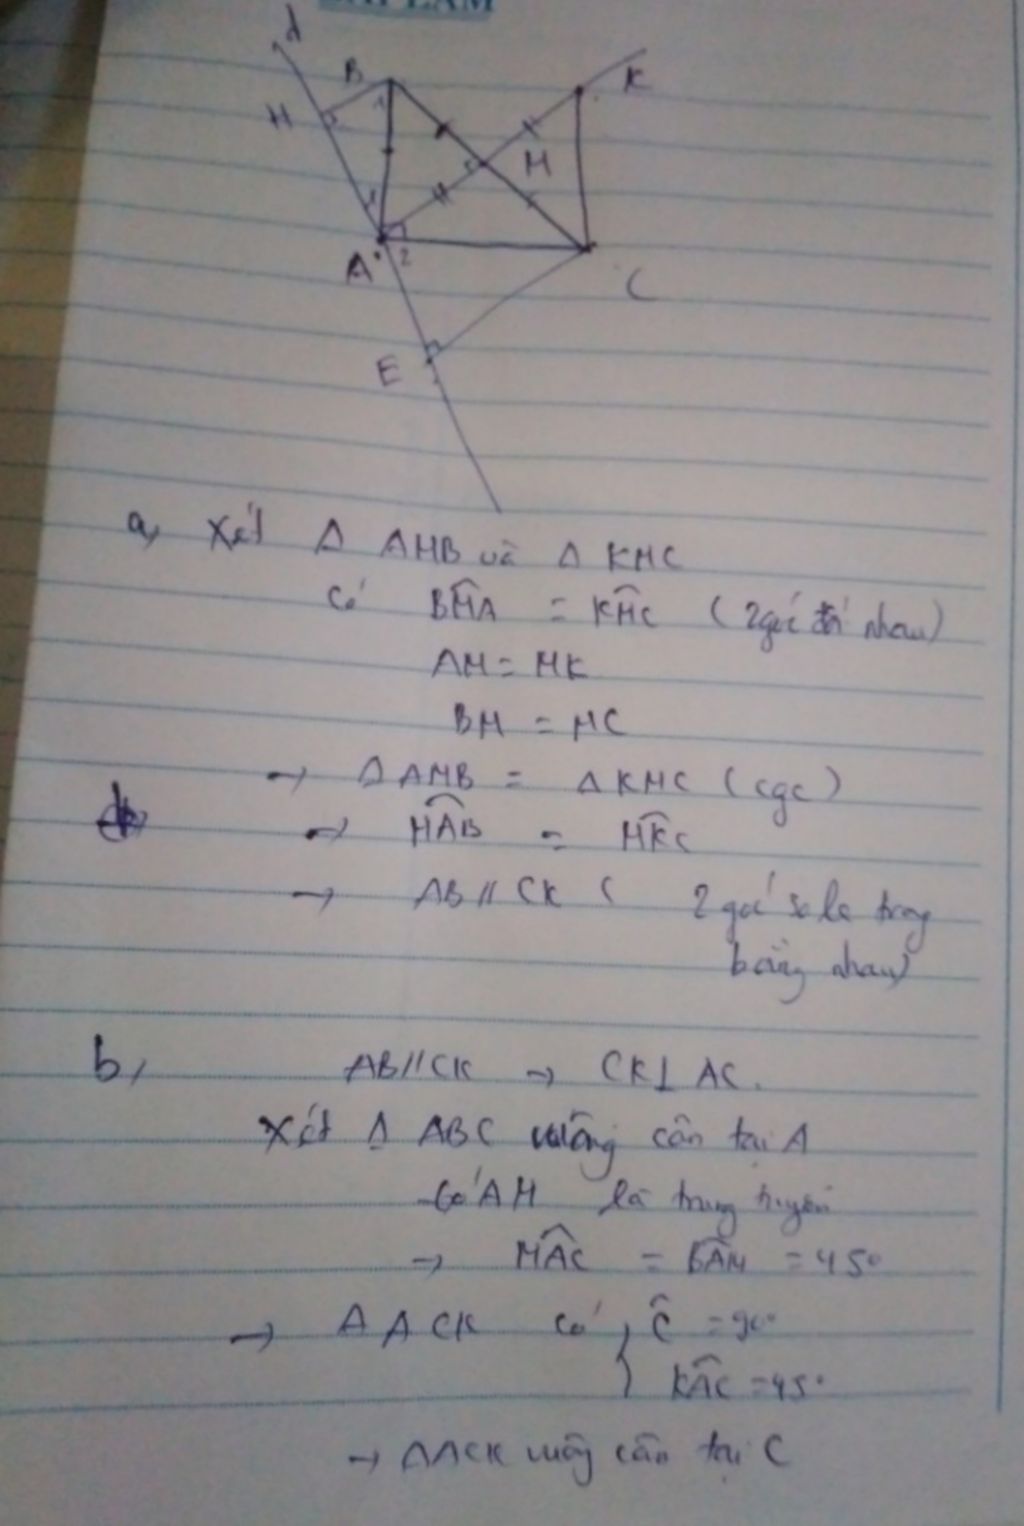 BÀI LÀM
d
B
K
H
1
M
1
A
2
C
E
a, Xét Δ AMB và Δ KMC
Có BMA = KMC (2 góc đối nhau)
AM = MK
BM = MC
→ Δ AMB = Δ KMC (cgc)
→ MAB = MKC
→ AB // CK ( 2 góc so le trong
bằng nhau)
b, AB // CK → CK ⊥ AC.
Xét Δ ABC vuông cân tại A
Có AM là trung tuyến
→ MAC = BAM = 45°
→ Δ ACK có { C = 90°
KAC = 45°
→ Δ ACK vuông cân tại C